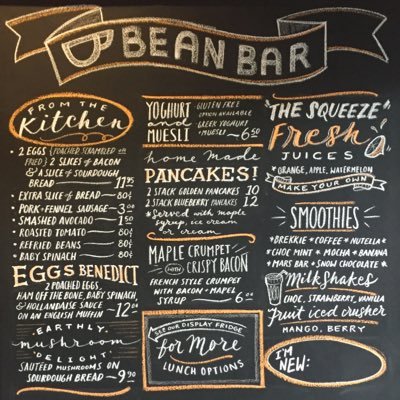 BEAN BAR
FROM THE
Kitchen
• 2 EGGS (POACHED, SCRAMBLED OR
FRIED) 2 SLICES of BACON
& A SLICE of SOURDOUGH
BREAD — 11.95
• EXTRA SLICE of BREAD — 80¢
• PORK + FENNEL SAUSAGE — 3.00
• SMASHED AVOCADO — 1.50
• ROASTED TOMATO — 80¢
• REFRIED BEANS — 80¢
• BABY SPINACH — 80¢
EGGS BENEDICT
2 POACHED EGGS,
HAM OFF THE BONE, BABY SPINACH,
& HOLLANDAISE SAUCE
ON AN ENGLISH MUFFIN — 12.00
EARTHLY
mushroom
'DELIGHT'
SAUTÉED MUSHROOMS ON
SOURDOUGH BREAD — 9.90
YOGHURT
and
MUESLI
GLUTEN FREE
OPTION AVAILABLE
GREEK YOGHURT
+ MUESLI — 6.50
home Made
PANCAKES!
2 STACK GOLDEN PANCAKES 10
2 STACK BLUEBERRY PANCAKES 12
* Served with maple
syrup, ice cream
& cream
MAPLE CRUMPET
with CRISPY BACON
FRENCH STYLE CRUMPET
WITH BACON + MAPLE
SYRUP — 6.00
SEE OUR DISPLAY FRIDGE
for More
LUNCH OPTIONS
'THE SQUEEZE'
Fresh
JUICES
* ORANGE, APPLE, WATERMELON
MAKE YOUR OWN
SMOOTHIES
• BREKKIE • COFFEE • NUTELLA •
• CHOC MINT • MOCHA • BANANA
• MARS BAR • SNOW CHOCOLATE •
Milkshakes
CHOC, STRAWBERRY, VANILLA
Fruit iced crusher
MANGO, BERRY
I'M
NEW: